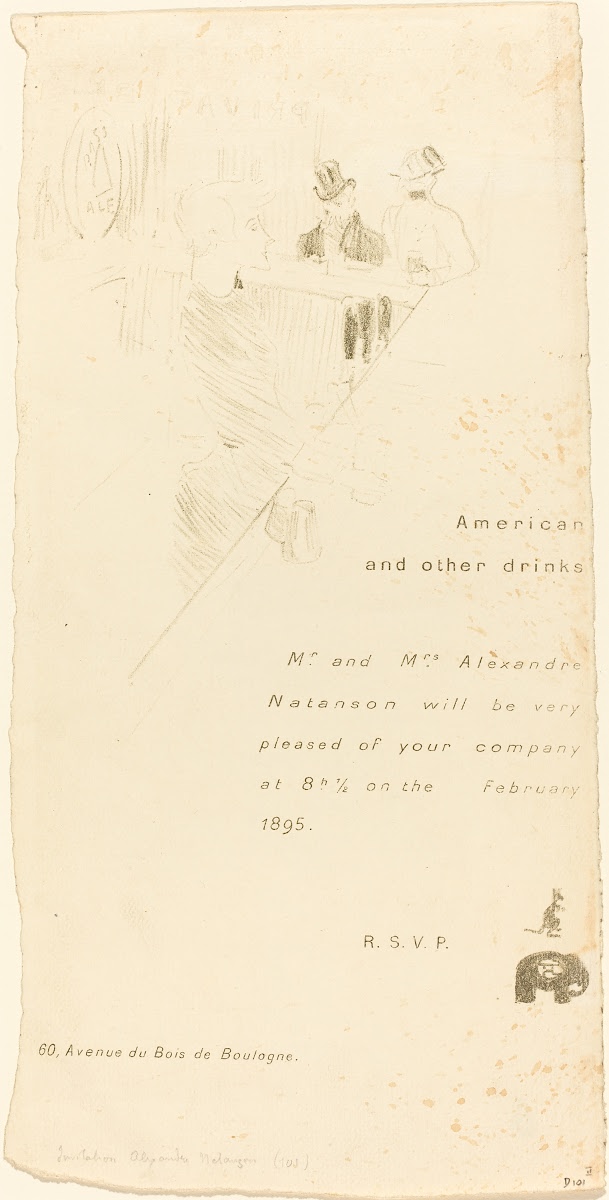 BASS
ALE
American
and other drinks
Mr. and Mrs. Alexandre
Natanson will be very
pleased of your company
at 8h 1/2 on the February
1895.
R. S. V. P.
60, Avenue du Bois de Boulogne.
Invitation Alexandre Natanson (101)
II
D101